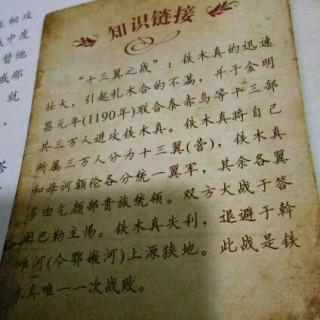 知识链接
“十三翼之战”：铁木真的迅速
壮大，引起扎木合的不满，并于金明
昌元年(1190年)联合泰赤乌等十三部
共三万人进攻铁木真。铁木真将自己
所属三万人分为十三翼(营)，铁木真
和母诃额伦各分统一翼军，其余各翼
多由乞颜部贵族统领。双方大战于答
阑巴勒主惕。铁木真失利，退避于斡
难河(今鄂嫩河)上源狭地。此战是铁
木真唯一一次战败。
在相攻
战中度
替他
成那
就
答